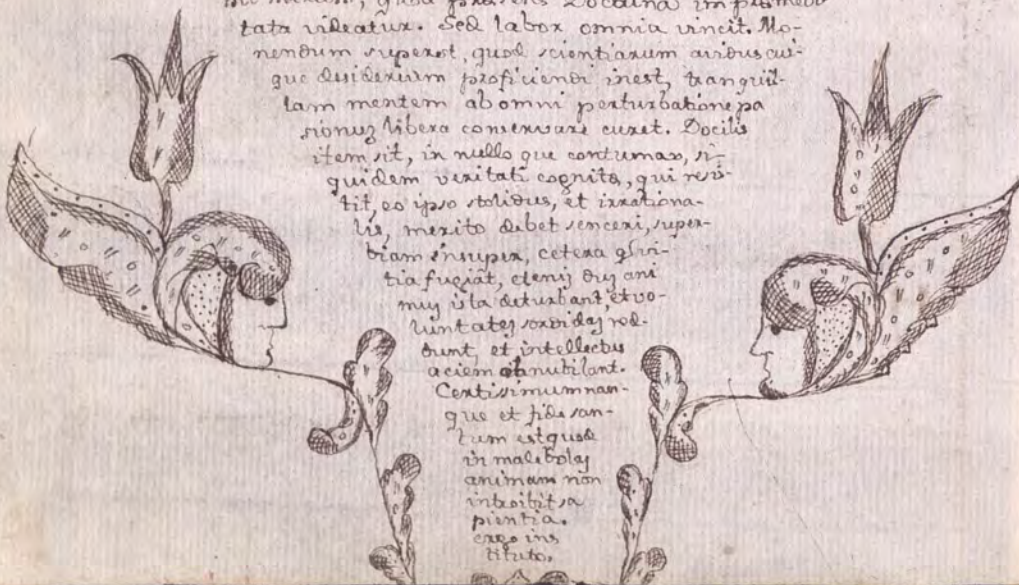 tata videatur. Sed labor omnia vincit. Mo-
nendum superest, quod scientiarum avidus cui-
que desiderium proficiendi inest, tranquil-
lam mentem ab omni perturbatione pa
sionuz libera conservare curet. Docilis
item sit, in nullo que contumax, si-
quidem veritati cognitæ, qui resis-
tit, eo ipso stolidus, et irrationa-
lis, merito debet senceri, super-
biam insuper, cetera q vi-
tia fugiat, etenij
muz ista deturbant, et vo-
luntatez sordidaz red-
dunt, et intellectus
aciem obnubilant.
Certissimum nan-
que et fide san-
tum est quod
in malebolaz
animam non
introibit sa
pientia.
ergo ins
tituto,